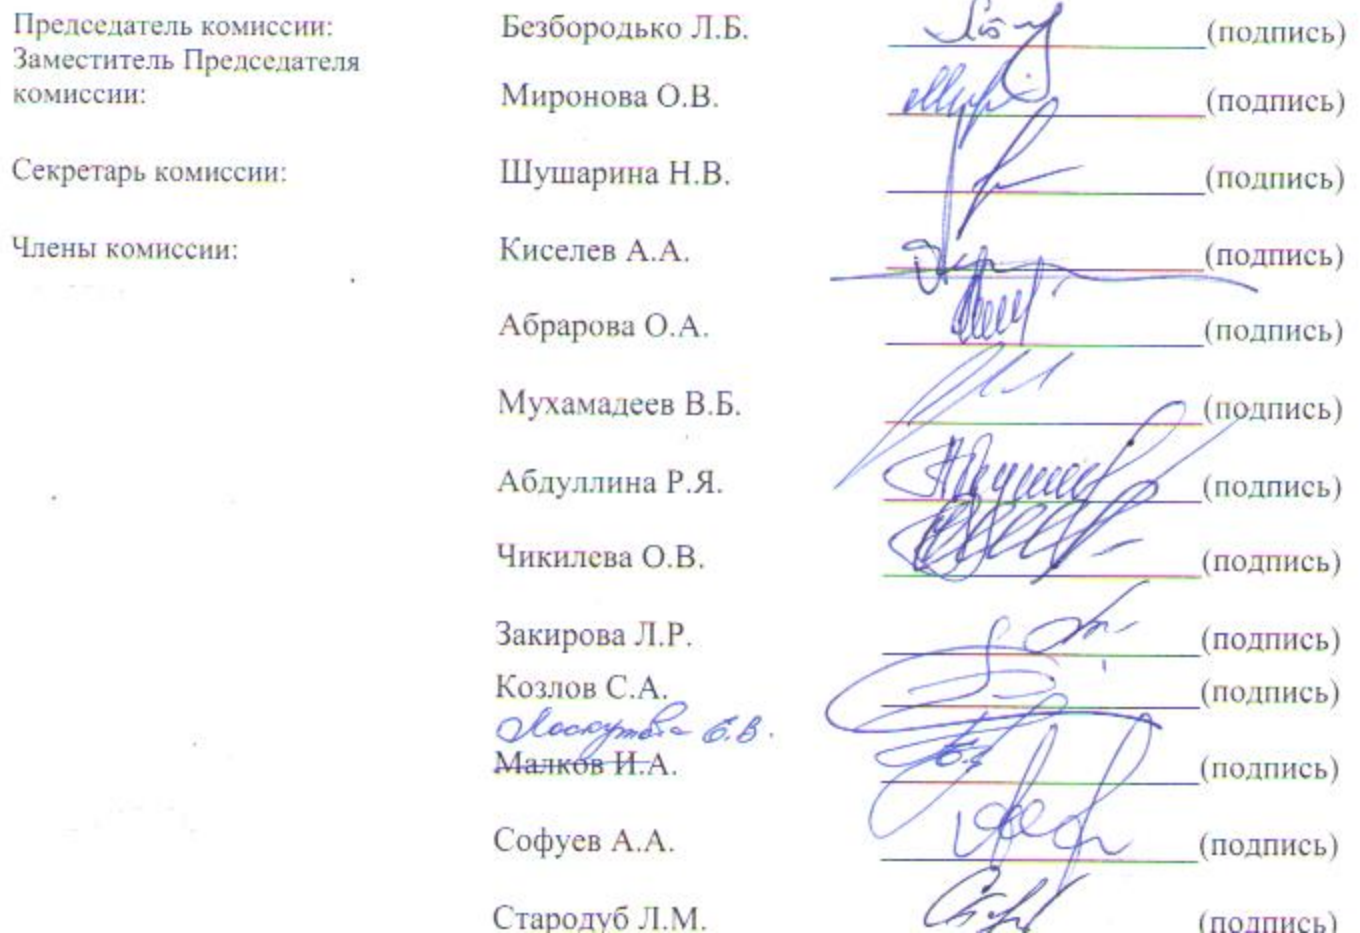 Председатель комиссии: Безбородько Л.Б. (подпись)
Заместитель Председателя
комиссии: Миронова О.В. (подпись)
Секретарь комиссии: Шушарина Н.В. (подпись)
Члены комиссии: Киселев А.А. (подпись)
Абрарова О.А. (подпись)
Мухамадеев В.Б. (подпись)
Абдуллина Р.Я. (подпись)
Чикилева О.В. (подпись)
Закирова Л.Р. (подпись)
Козлов С.А. (подпись)
Лоскутова Е.В.
Малков И.А. (подпись)
Софуев А.А. (подпись)
Стародуб Л.М. (подпись)